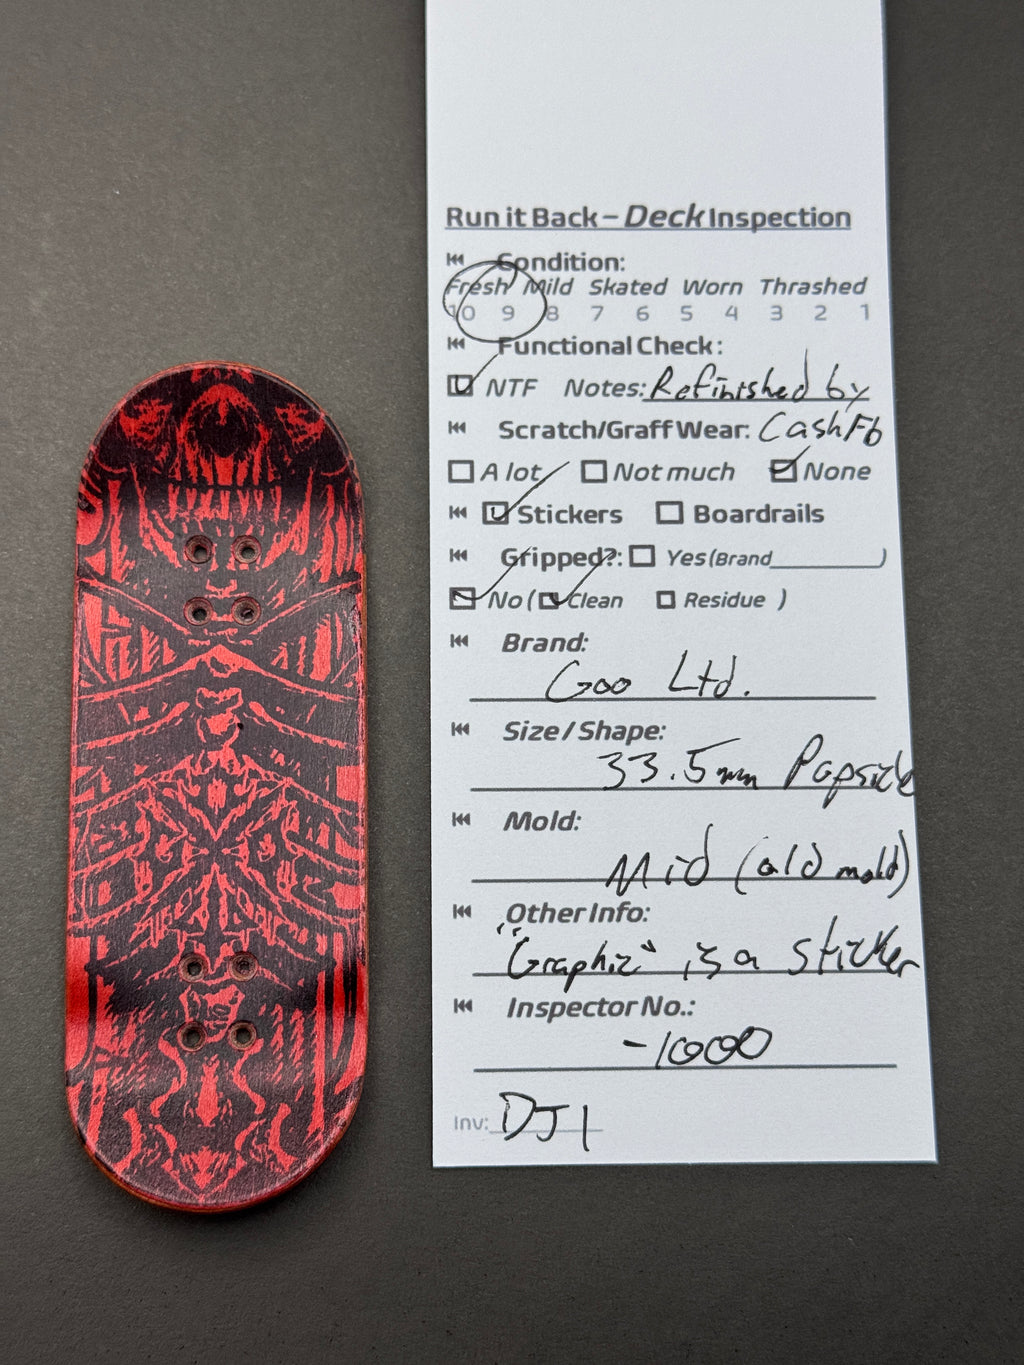 Run it Back – Deck Inspection
Condition:
Fresh Mild Skated Worn Thrashed
10 9 8 7 6 5 4 3 2 1
Functional Check:
NTF Notes: Refinished by
Scratch/Graff Wear: CashFb
A lot Not much None
Stickers Boardrails
Gripped?: Yes (Brand________)
No (Clean Residue )
Brand:
Goo Ltd.
Size / Shape:
33.5mm Popsicle
Mold:
Mid (old mold)
Other Info:
"Graphic" is a sticker
Inspector No.:
-1000
Inv: DJ1